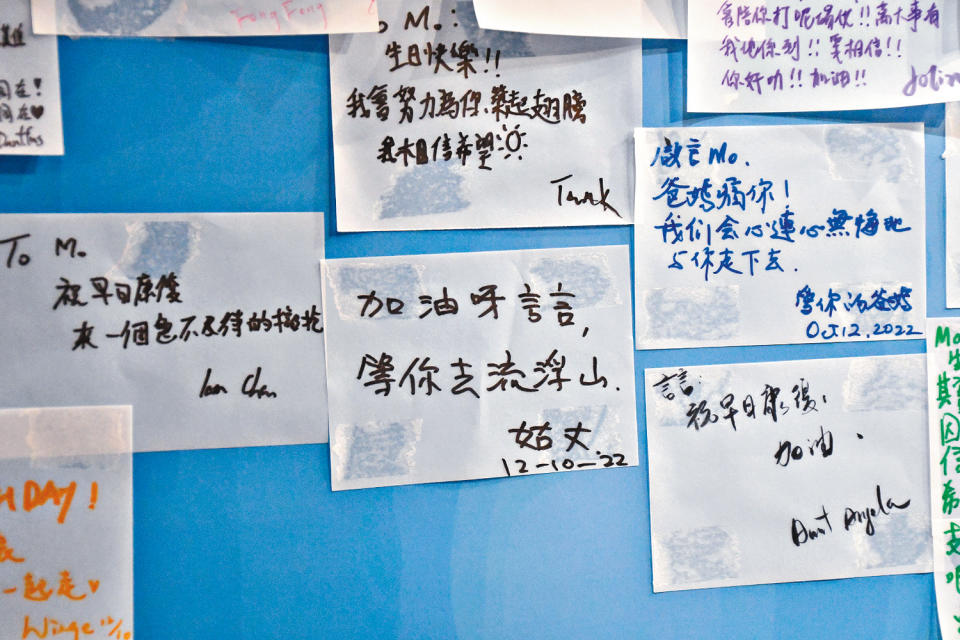 Fong Fong
同在!
同在♥
To Mo:
生日快樂!!
我會努力為你築起翅膀
我相信希望
會陪你打呢場仗!!萬大事有
我哋係到!!要相信!!
你好叻!!加油!!
To M。
祝早日康復
來一個急不及待的擁抱
Ian Chan
加油呀言言,
等你去流浮山.
姑丈
12-10-22
敬言Mo.
爸媽痛你!
我们会心連心無悔地
与你走下去.
等你的爸媽
Oct 12.2022
言言:
祝早日康復,
加油.
Aunt Angela
DAY!
一起走♥
Winge 12/10
Mo
生
其實
因
信
希
支
吧